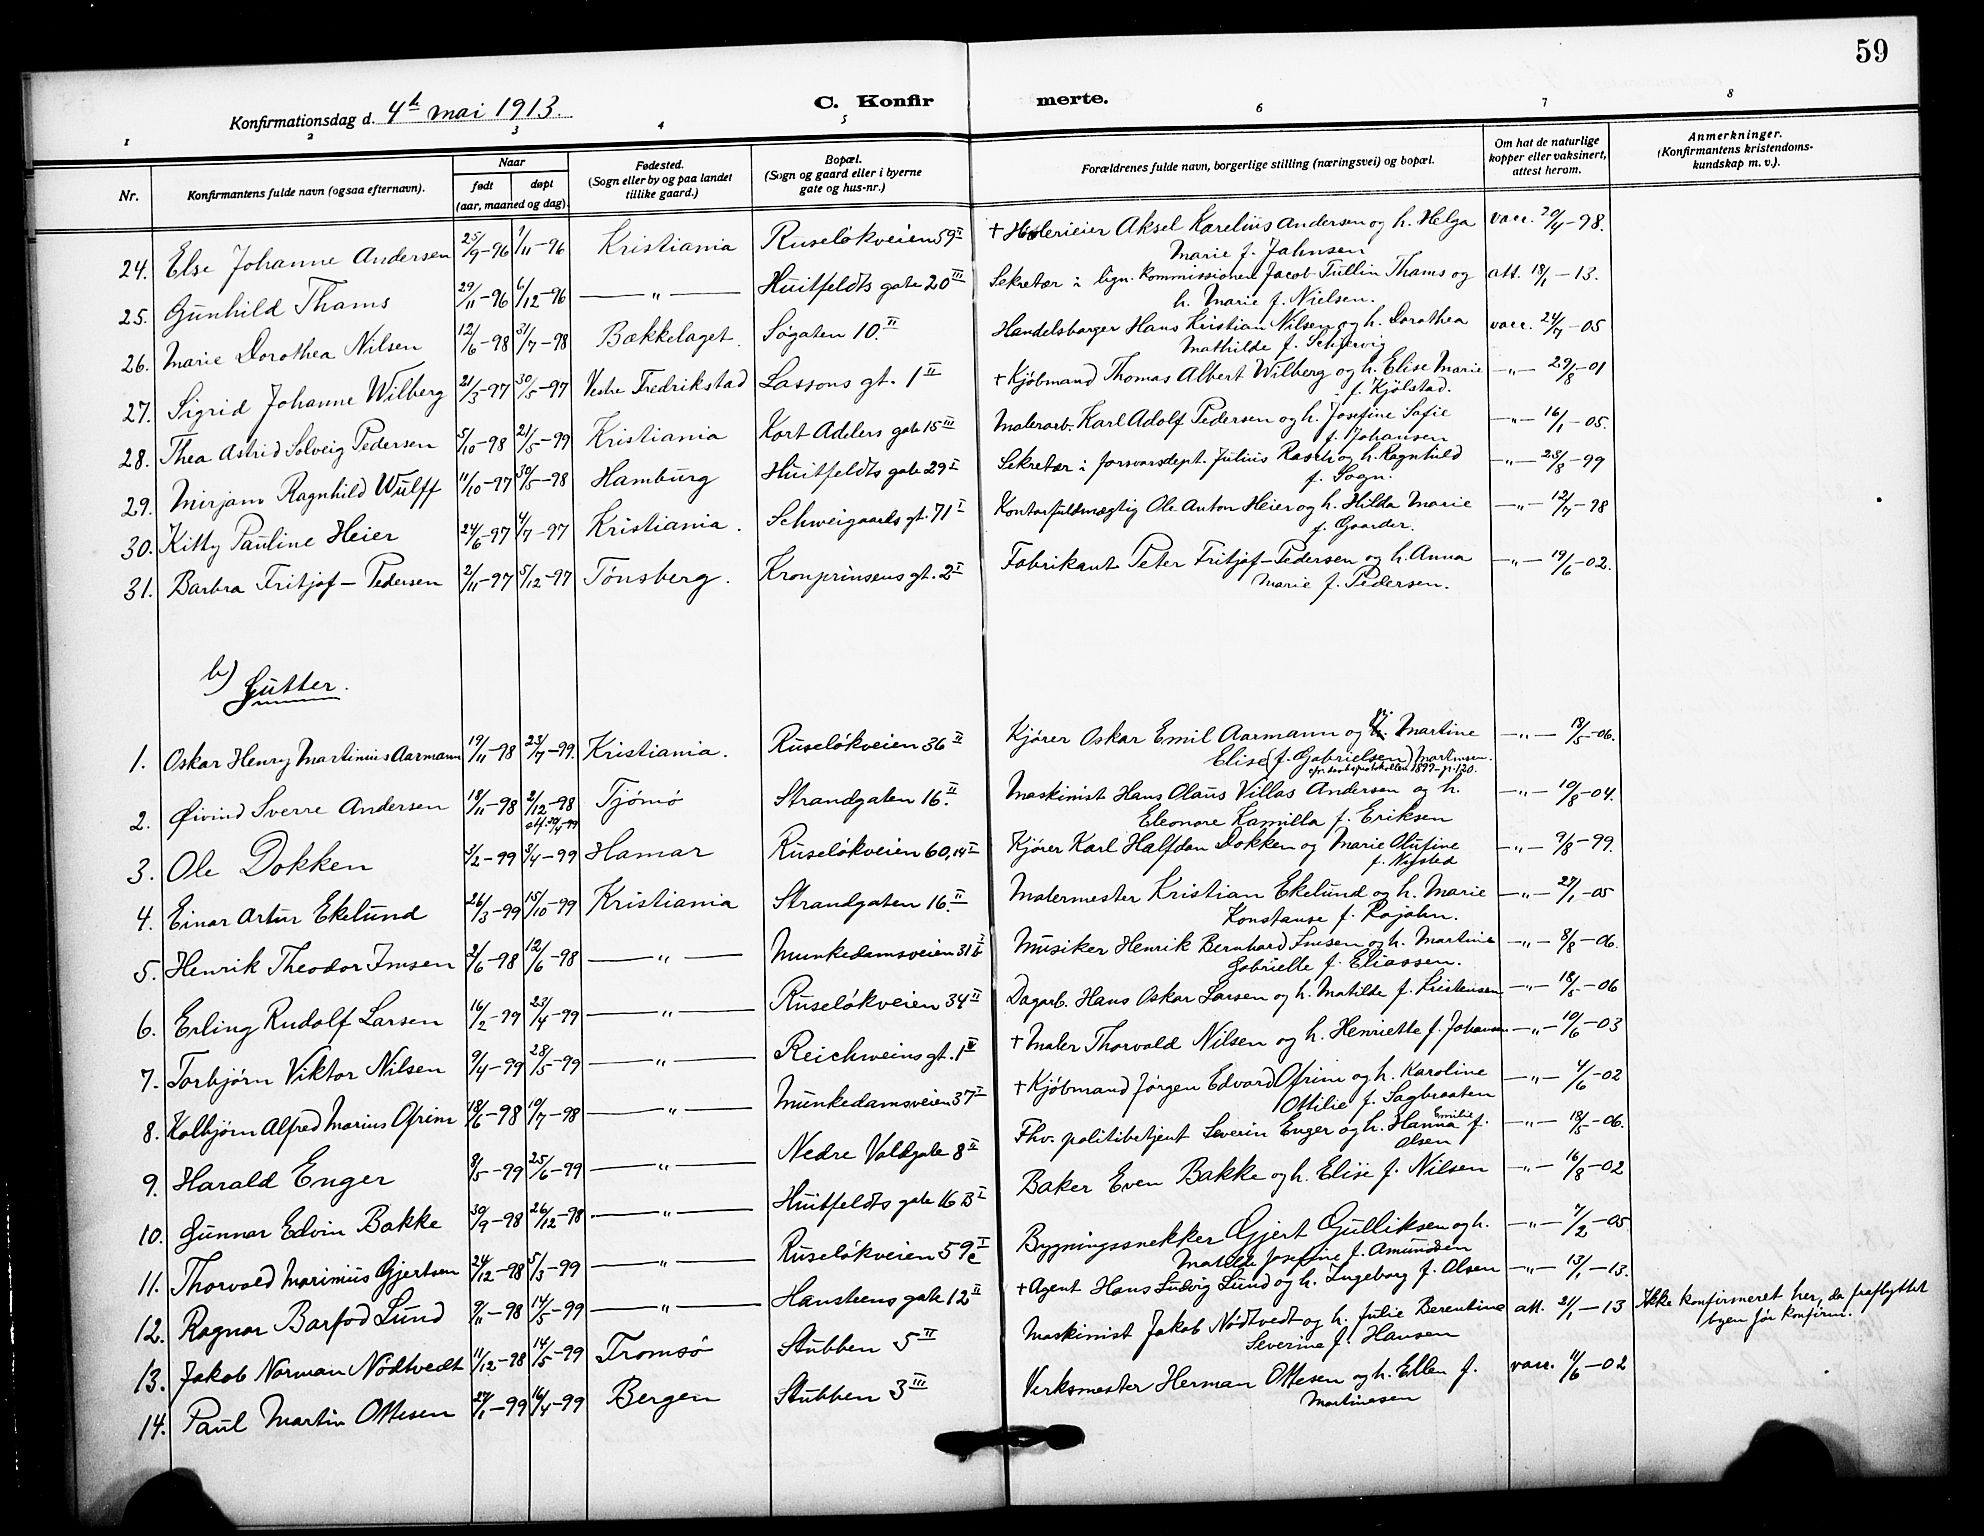 59
C. Konfirmerte.
Konfirmationsdag d. 4de mai 1913.
1 2 3 4 5 6 7 8
Nr. Konfirmantens fulde navn (ogsaa efternavn). Naar født døpt (aar, maaned og dag). Fødested. (Sogn eller by og paa landet tillike gaard.) Bopæl. (Sogn og gaard eller i byerne gate og hus-nr.) Forældrenes fulde navn, borgerlige stilling (næringsvei) og bopæl. Om hat de naturlige kopper eller vaksinert, attest herom. Anmerkninger. (Konfirmantens kristendoms-kundskap m. v.).
24. Else Johanne Andersen 25/9-96 1/11-96 Kristiania Ruseløkveien 59 II + Aksel Karelius Andersen og h. Helga vacc. 20/4-98.
Marie f. Jahnsen
25. Gunhild Thams 29/11-96 6/12-96 —"— Huitfeldts gate 20 III Sekretær i lign. kommissionen Jacob Tullin Thams og att. 18/1-13.
h. Marie f. Nielsen.
26. Marie Dorothea Nilsen 12/6-98 31/7-98 Bækkelaget. Søgaten 10. II Handelsborger Hans Kristian Nilsen og h. Dorothea vacc. 24/7-05
Mathilde f.
27. Sigrid Johanne Wilberg 21/3-97 30/5-97 Vestre Fredrikstad Lassons gt. 1 II + Kjøbmand Thomas Albert Wilberg og h. Elise Marie —"— 29/8-01
f. Kjølstad.
28. Thea Astrid Solveig Pedersen 5/10-98 21/5-99 Kristiania Kort Adelers gate 15 III Malerarb. Karl Adolf Pedersen og h. Josefine Sofie —"— 16/1-05.
f. Johansen
29. Mirjam Ragnhild Wulff 11/10-97 30/5-98 Hamburg Huitfeldts gate 29 I Sekretær i forsvarsdept. Julius Rasch og h. Ragnhild —"— 23/8-99
f. Sogn.
30. Kitty Pauline Heier 24/6-97 4/7-97 Kristiania. Schweigaards gt. 71 I Kontorfuldmægtig Ole Anton Heier og h. Hilda Marie —"— 12/7-98
f. Gaarder.
31. Barbra Fritjof-Pedersen 2/11-97 5/12-97 Tönsberg. Kronprinsens gt. 2 I Fabrikant Peter Fritjof-Pedersen og h. Anna —"— 19/6-02.
Marie f. Pedersen.
b) Gutter.
1. Oskar Henry Martinius Aarmann 19/11-98 23/7-99. Kristiania. Ruseløkveien 36 II Kjører Oskar Emil Aarmann og Martine —"— 18/5-06.
Elise (f. Gabrielsen) Martinsen.
1899 p. 120.
2. Øivind Sverre Andersen 18/11-98 2/12-98 Tjømø Strandgaten 16. II Maskinist Hans Olaus Villas Andersen og h. —"— 10/8-04.
Eleonore Kamilla f. Eriksen
3. Ole Dokken 3/2-99 3/4-99 Hamar Ruseløkveien 60,14 I Kjører Karl Halfdan Dokken og Marie Olufine —"— 9/8-99.
f. Nysted
4. Einar Artur Ekelund 26/3-99 15/10-99 Kristiania Strandgaten 16. II Malermester Kristian Ekelund og h. Marie —"— 27/1-05
Konstanse f. Rajahn.
5. Henrik Theodor Imsen 2/6-98 12/6-98 —"— Munkedamsveien 31 b I Musiker Henrik Bernhard Imsen og h. Martine —"— 8/8-06.
Gabrielle f. Eliassen.
6. Erling Rudolf Larsen 16/2-99 23/4-99 —"— Ruseløkveien 34 II Dagarb. Hans Oskar Larsen og h. Matilde f. Kristensen —"— 18/5-06
7. Torbjørn Viktor Nilsen 9/4-99 28/5-99 —"— Reichweins gt. 1 IV + Maler Thorvald Nilsen og h. Henriette f. Johansen —"— 10/6-03
8. Kolbjørn Alfred Marius Ofrim 18/6-98 10/7-98 —"— Munkedamsveien 37 I + Kjøbmand Jørgen Edvard Ofrim og h. Karoline —"— 4/6-02
Ottilie f. Sagbraaten
9. Harald Enger 8/5-99 25/6-99 —"— Nedre Voldgate 8 II Fhv. politibetjent Severin Enger og h. Hanna Emilie f. —"— 18/5-06.
Olsen
10. Gunnar Edvin Bakke 30/9-98 26/12-98 —"— Huitfeldts gate 16 B I Baker Even Bakke og h. Elise f. Nilsen —"— 16/8-02
11. Thorvald Marinius Gjertsen 24/12-98 5/3-99 —"— Ruseløkveien 59 c I Bygningssnekker Gjert Gulliksen og h. —"— 7/2-05
Matilde Josefine f. Amundsen
12. Ragnar Barfod Lund 9/11-98 14/5-99 —"— Hansteens gate 12 II + Agent Hans Ludvig Lund og h. Ingeborg f. Olsen —"— 13/1-13.
13. Jakob Norman Nödtvedt 11/12-98 14/5-99 Tromsø Stubben 5 II Maskinist Jakob Nödtvedt og h. Julie Berentine att. 21/1-13 Ikke konfirmeret her, da fraflyttet
Severine f. Hansen byen før konfirm.
14. Paul Martin Ottesen 27/1-99 16/4-99 Bergen Stubben 3 III Verksmester Herman Ottesen og h. Ellen f. vacc. 11/6-02
Martinesen